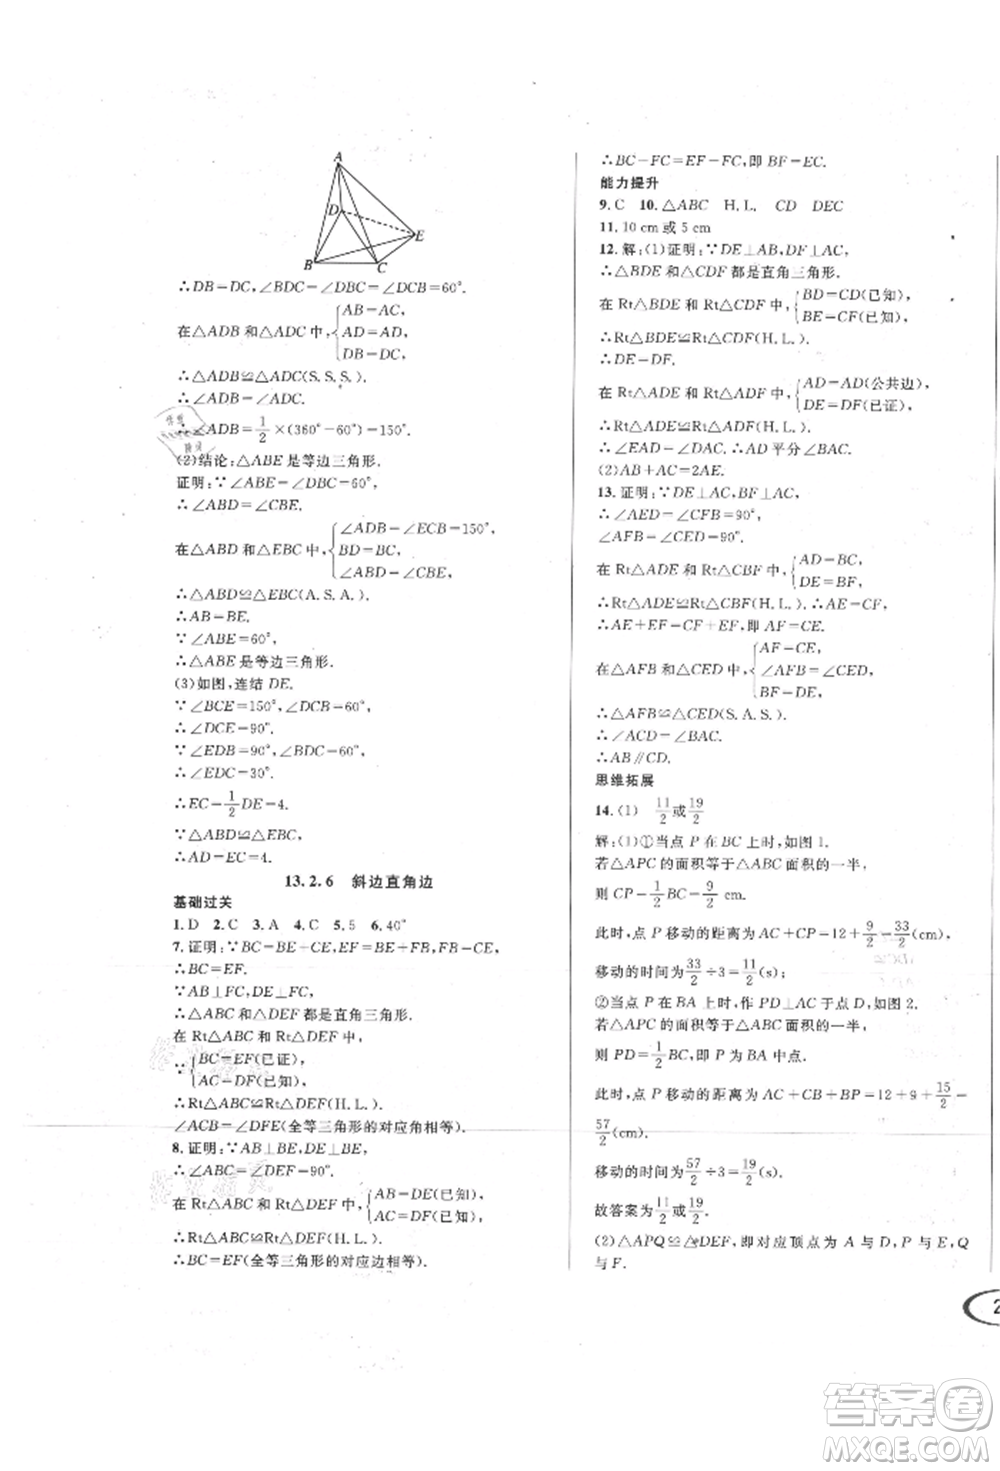 A
D
E
B
C
∴DB=DC,∠BDC=∠DBC=∠DCB=60°.
在△ADB和△ADC中,{AB=AC, AD=AD, DB=DC,
∴△ADB≌△ADC(S.S.S.).
∴∠ADB=∠ADC.
∴∠ADB=1/2×(360°-60°)=150°.
(2)结论:△ABE是等边三角形.
证明:∵∠ABE=∠DBC=60°,
∴∠ABD=∠CBE.
在△ABD和△EBC中,{∠ADB=∠ECB=150°, BD=BC, ∠ABD=∠CBE,
∴△ABD≌△EBC(A.S.A.).
∴AB=BE.
∵∠ABE=60°,
∴△ABE是等边三角形.
(3)如图,连结DE.
∵∠BCE=150°,∠DCB=60°,
∴∠DCE=90°.
∵∠EDB=90°,∠BDC=60°,
∴∠EDC=30°.
∴EC=1/2DE=4.
∵△ABD≌△EBC,
∴AD=EC=4.
13.2.6 斜边直角边
基础过关
1.D 2.C 3.A 4.C 5.5 6.40°
7.证明:∵BC=BE+CE,EF=BE+FB,FB=CE,
∴BC=EF.
∵AB⊥FC,DE⊥FC,
∴△ABC和△DEF都是直角三角形.
在Rt△ABC和Rt△DEF中,
∵{BC=EF(已证), AC=DF(已知),
∴Rt△ABC≌Rt△DEF(H.L.).
∠ACB=∠DFE(全等三角形的对应角相等).
8.证明:∵AB⊥BE,DE⊥BE,
∴∠ABC=∠DEF=90°.
在Rt△ABC和Rt△DEF中,{AB=DE(已知), AC=DF(已知),
∴Rt△ABC≌Rt△DEF(H.L.).
∴BC=EF(全等三角形的对应边相等).
∴BC-FC=EF-FC,即BF=EC.
能力提升
9.C 10.△ABC H.L. CD DEC
11.10 cm或5 cm
12.解:(1)证明:∵DE⊥AB,DF⊥AC,
∴△BDE和△CDF都是直角三角形.
在Rt△BDE和Rt△CDF中,{BD=CD(已知), BE=CF(已知),
∴Rt△BDE≌Rt△CDF(H.L.).
∴DE=DF.
在Rt△ADE和Rt△ADF中,{AD=AD(公共边), DE=DF(已证),
∴Rt△ADE≌Rt△ADF(H.L.).
∴∠EAD=∠DAC.∴AD平分∠BAC.
(2)AB+AC=2AE.
13.证明:∵DE⊥AC,BF⊥AC,
∴∠ADE=∠CFB=90°,
∠AFB=∠CED=90°.
在Rt△ADE和Rt△CBF中,{AD=BC, DE=BF,
∴Rt△ADE≌Rt△CBF(H.L.).∴AE=CF.
∴AE+EF=CF+EF,即AF=CE.
在△AFB和△CED中,{AF=CE, ∠AFB=∠CED, BF=DE,
∴△AFB≌△CED(S.A.S.).
∴∠ACD=∠CAB.
∴AB∥CD.
思维拓展
14.(1) 11/2或19/2
解:(1)①当点P在BC上时,如图1.
若△APC的面积等于△ABC面积的一半,
则CP=1/2BC=9/2 cm.
此时,点P移动的距离为AC+CP=12+9/2=33/2(cm),
移动的时间为33/2÷3=11/2(s);
②当点P在BA上时,作PD⊥AC于点D,如图2.
若△APC的面积等于△ABC面积的一半,
则PD=1/2BC,即P为BA中点.
此时,点P移动的距离为AC+CB+BP=12+9+15/2=
57/2(cm).
移动的时间为57/2÷3=19/2(s).
故答案为11/2或19/2.
(2)△APQ≌△DEF,即对应顶点为A与D,P与E,Q
与F.
2
答案卷
MXQE.COM